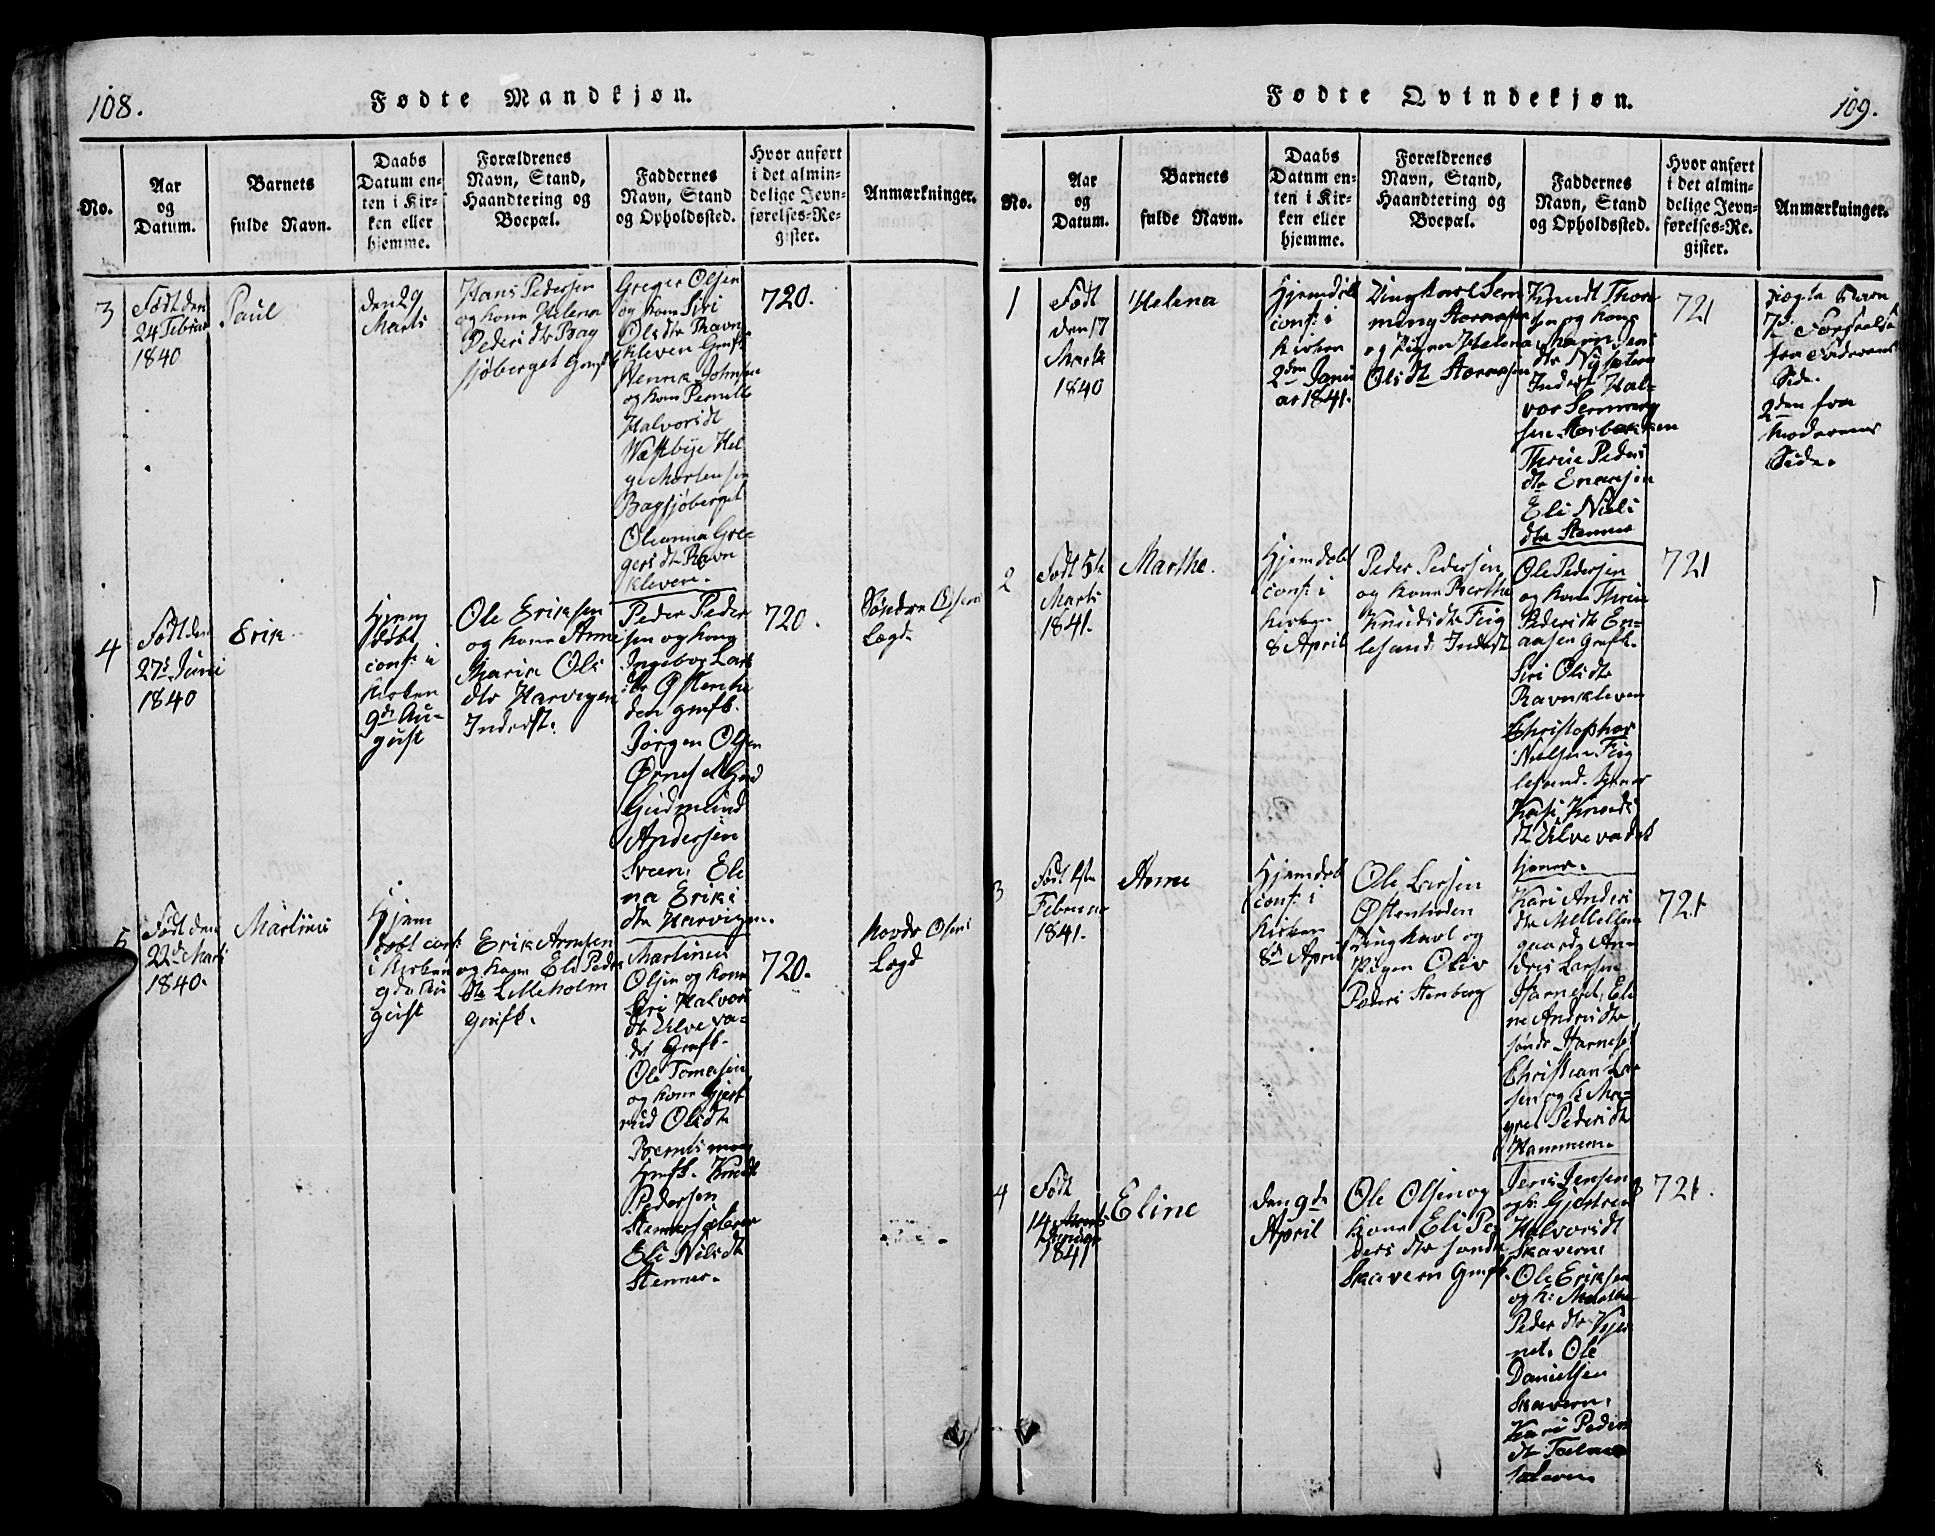 108.
Fødte Mandkjøn.
No.
Aar
og
Datum.
Barnets
fulde Navn.
Daabs
Datum en-
ten i Kir-
ken eller
hjemme.
Forældrenes
Navn, Stand,
Haandtering og
Boepæl.
Faddernes
Navn, Stand
og Opholdssted.
Hvor anført
i det almin-
delige Jevn-
førelses-Re-
gister.
Anmærkninger.
3
Født den
24 Februar
1840
Paul
den 29
Marti
Hans Pedersen
og kone Helena
Peders dtr Bag
sjøberget
Greger Olsen
og kone Siri
Ols dtr Ravn
kleven
Henrik Johnsen
og kone Pernille
Halvorsdt
Westbye Hel
ge Mortensen
Bagsjøberget
Oleanna Gre-
gers dtr Ravn
kleven.
720.
4
Født den
27de Juni
1840
Erik
Hjem
døbt
conf: i
Kirken
9de Au-
gust
Ole Eriksen
og kone Anne
Maria Ols
dtr Harvigen
Inderst:
Peder Peder
sen og kone
Ingebor Lars
dtr Østenhe
den
Jørgen Olsen
Gudmund
Andersen
Sveen, Eli
na Eriks
dtr Harvigen.
720.
Søndre Osens
Lægd
5
Født den
22de Marti
1840.
Martinus
Hjem
døbt conf:
i Kirken
9de Au
gust
Erik Arnesen
og kone Eli Peder
dtr Lilleholm
Martinus
Olsen og kone
Siri Halvors
dtr Ulveva-
det
Ole Tomesen
og kone Gjert
rud Olsdtr
Knudt
Pedersen
Stennersæteren
Eli Nilsdtr
Stenner.
720.
Nordr Osens
Lægd
109.
Fødte Qvindekjøn.
No.
Aar
og
Datum.
Barnets
fulde Navn.
Daabs
Datum en-
ten i Kir-
ken eller
hjemme.
Forældrenes
Navn, Stand,
Haandtering og
Boepæl.
Faddernes
Navn, Stand
og Opholdssted.
Hvor anført
i det almin-
delige Jevn-
førelses-Re-
gister.
Anmærkninger.
1
Født
den 17
Mark
1840
Helena
Hjemdøbt
conf: i
Kirken
2den Janu
ar 1841.
Ungkarl Sem
ming
og Pigen Helena
Olsdtr
Knudt Thore
sen og kone
Karin Jens
dtr Nysæteren
Inderst Hal-
vor Semming
sen Storbækken
Thrine Peders
dtr Enersen
Eli Niels
dtr Stenner
721
7de Forseelse
fra Faderens
Side.
2den fra
Moderens
Side.
2
Født 5te
Marti
1841.
Marthe.
Hjemdøbt
conf: i
Kirken
8 April
Peder Pedersen
og kone Berthe
Knudsdtr Fug
lesand Inderst
Ole Pedersen
og kone Thrine
Pedersdtr En-
aasen
Siri Olsdtr
Ravnkleven
Christopher
Nielsen Fug
lesand
Kari Knuds
dtr Ulvevadet
tjener.
721
3
Født
Februar
1841.
Anne
Hjemdøbt
conf: i
Kirken
8de April
Ole Larsen
Østenheden
Ungkarl og
Pigen Oliv
Peders Stenberg
Kari Anders
dtr Mellem
gaard, An-
ders Larsen
Harnest, Eli
ne Andersdtr
søndr Harnest
Christian Lar
sen og k: Mar-
gret Pedersdtr
Hammeren.
721
4
Født
14 Marti
Januar
1841
Eline
den 9de
April
Ole Olsen og
kone Eli Pe
ders dtr søndr
Skavern
Jens Jensen
og k: Gjertrud
Halvorsdt
Skavern,
Ole Eriksen
og k: Marthe
Peder dtr Kjer
net. Ole
Danielsen
Skavern,
Kari Peders
dtr
721.